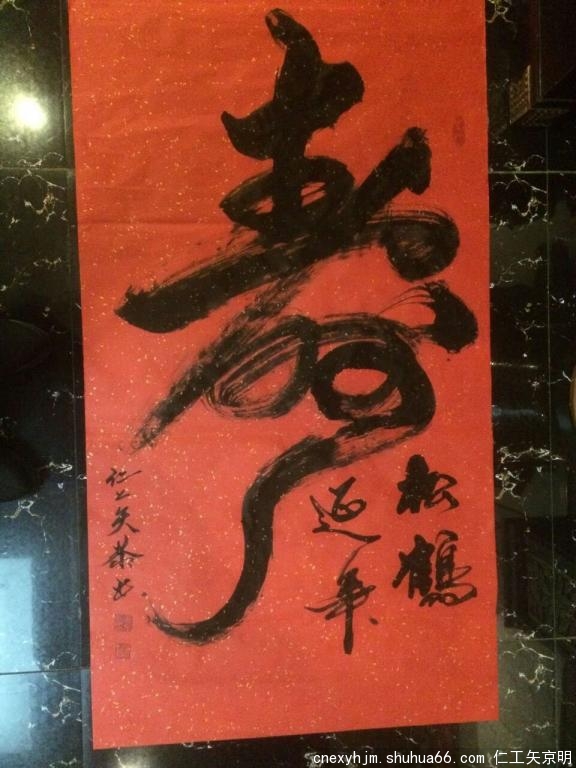 寿
松鹤
延年
仁工矢恭书
cnexyhjm.shuhua66.com 仁工矢京明